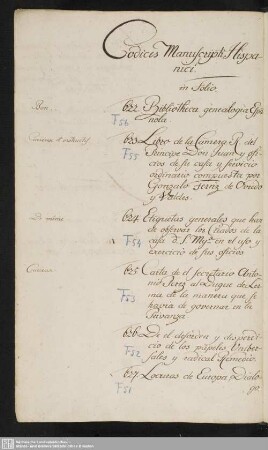 Codices Manuscripti Hispa-
nici.
in Folio.
Bon.
622. Bibliotheca genealogica Espa-
ñola
F56
Curieux et instructif
623. Libro de la Camera R. del
Principe Don Juan, y offi-
cios de su casa y servicio
ordinario compuesto por
Gonzalo Fernz de Oviedo
y Valdes.
F55
de même
624. Etiquetas generales que han
de observar los Criados de la
casa d. S. Mgd. en el uso y
exercicio de sus oficios
F54
Curieux
625. Carta del Secretario Anto-
nio Perez al Duque de Ler-
ma de la manera que se
havia de governar en la
Privanza
F53
626. De el desorden y desperdi-
cio de los papeles Univer-
sales y radical Remedio.
F52
627. Locuras de Europa Dialo-
go.
F51